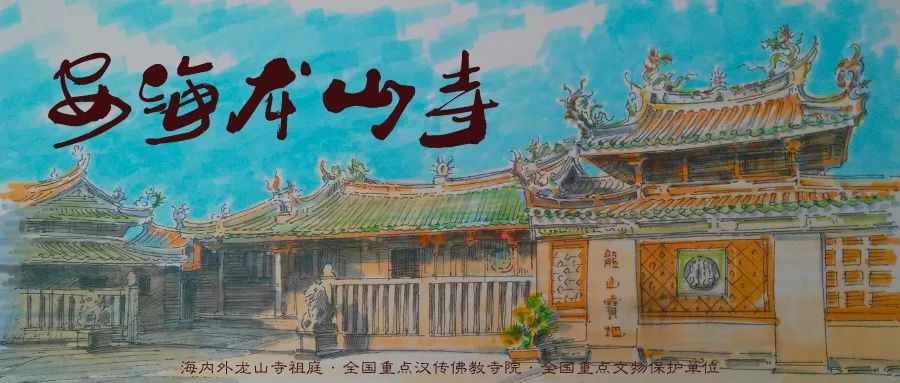 安海龙山寺
龍山寳地
海内外龙山寺祖庭·全国重点汉传佛教寺院·全国重点文物保护单位